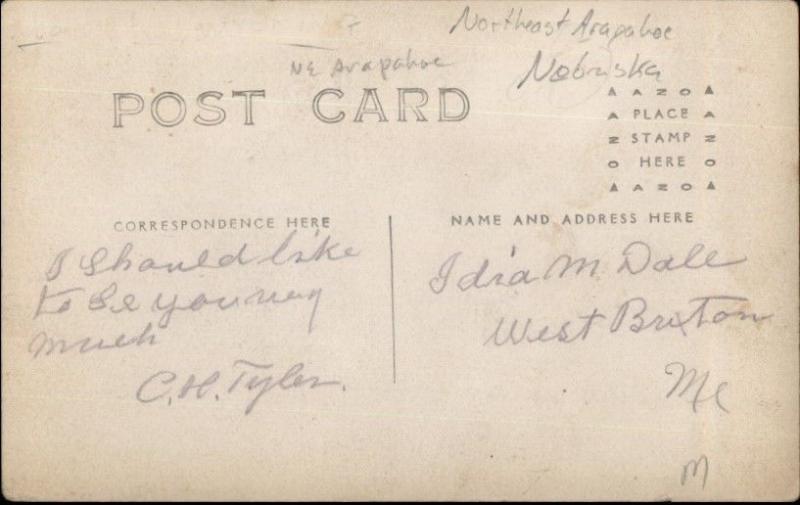 Northeast Arapahoe
Nebraska
NE Arapahoe
POST CARD
AZO
PLACE
STAMP
HERE
AZO
CORRESPONDENCE HERE
NAME AND ADDRESS HERE
I Should like
to Se you very
much
C. H. Tyler.
Idia M Dale
West Buxton
Me
M